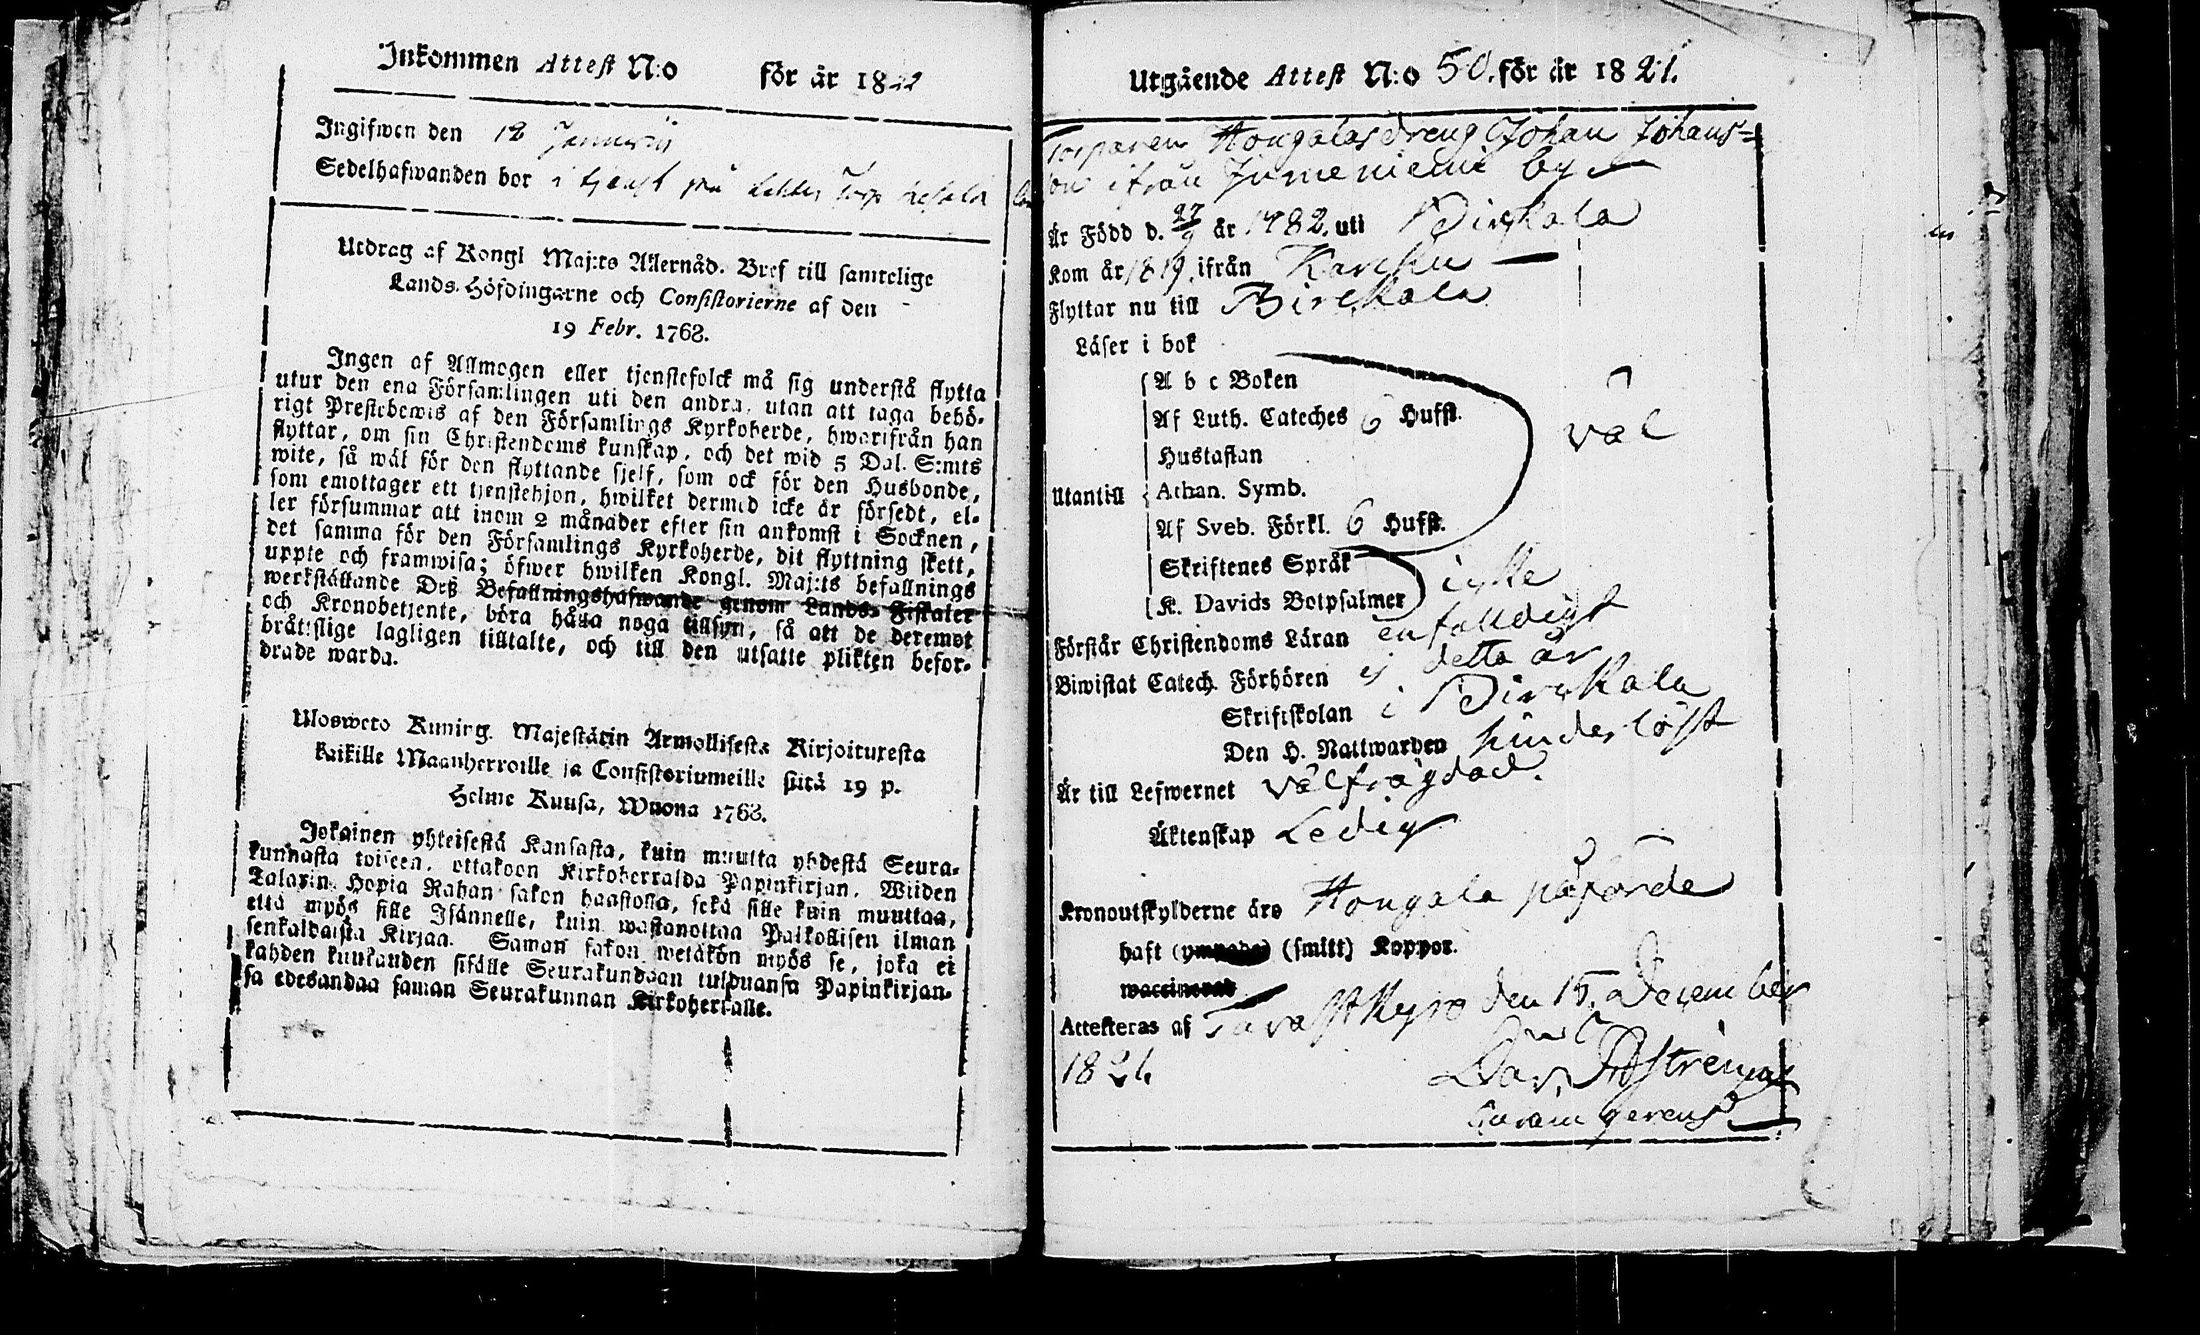 Inkommen Attest N:o för år 1822
Ingifwen den 12 Januarii
Sedelhafwanden bor i tjenst på Torp
Utdrag af Kongl Maj:ts Allernåd. Bref till samtelige
Lands-Höfdingarne och Consistorierne af den
19 Febr. 1768.
Ingen af Allmogen eller tjenstefolck må sig understå flytta
utur den ena Församlingen uti den andra, utan att taga behö-
rigt Prestebewis af den Församlings Kyrkoherde, hwarifrån han
flyttar, om sin Christendoms kunskap, och det wid 5 Dal. S:mts
wite, så wäl för den flyttande sjelf, som ock för den Husbonde,
som emottager ett tjenstehjon, hwilket dermed icke är försedt, el-
ler försummar att inom 2 månader efter sin ankomst i Socknen,
det samma för den Församlings Kyrkoherde, dit flyttning skett,
uppte och framwisa; öfwer hwilken Kongl. Maj:ts befallnings
werkställande Deß Befallningshafwande genom Lands-Fiskaler
och Kronobetjente, böra hålla noga tillsyn, så att de deremot
bråttslige lagligen tilltalte, och till den utsatte plikten befor-
drade warda.
Ulosweto Kuning. Majestätin Armollisesta Kirjoituxesta
kaikille Maanherroille ja Consistoriumeille siitä 19 p.
Helme Kuusa, Wuona 1768.
Jokainen yhteisestä Kansasta, kuin muutta yhdestä Seura-
kunnasta toiseen, ottakoon Kirkoherralda Papinkirjan, Wiiden
Talarin Hopia Rahan sakon haastolla, sekä sille kuin muuttaa,
että myös sille Isännelle, kuin wastanottaa Palkollisen ilman
senkaldaista Kirjaa. Saman sakon wetäkön myös se, joka ei
kahden kuukauden sisälle Seurakundaan tulduansa Papinkirjan-
sa edesandaa saman Seurakunnan Kirkoherralle.
Utgående Attest N:o 50. för år 1821.
Torparen Hongalas dreng Johan Johans=
son ifrån Jumeniemi by
Är Född d. 27/9 år 1782. uti Birkala
Kom år 1819. ifrån Karcku
Flyttar nu till Birckala
Läser i bok
A b c Boken
Af Luth. Cateches 6 Hufst.
Hustaflan
väl
Utantill Athan. Symb.
Af Sveb. Förkl. 6 Hufst.
Skriftenes Språk
K. Davids Botpsalmer icke
Förstår Christendoms Läran enfalldigt
Biwistat Catech. Förhören ej detta år
Skriftskolan i Birckala
Den H. Nattwarden hinderlöst
Är till Lefwernet välfrägdad.
Äktenskap Ledig
Kronoutskylderne äro Hongala påförde
haft (ympade) (smitt) Koppor.
waccinerad
Attesteras af Tavastkyro den 15. December
1821.
Dav.